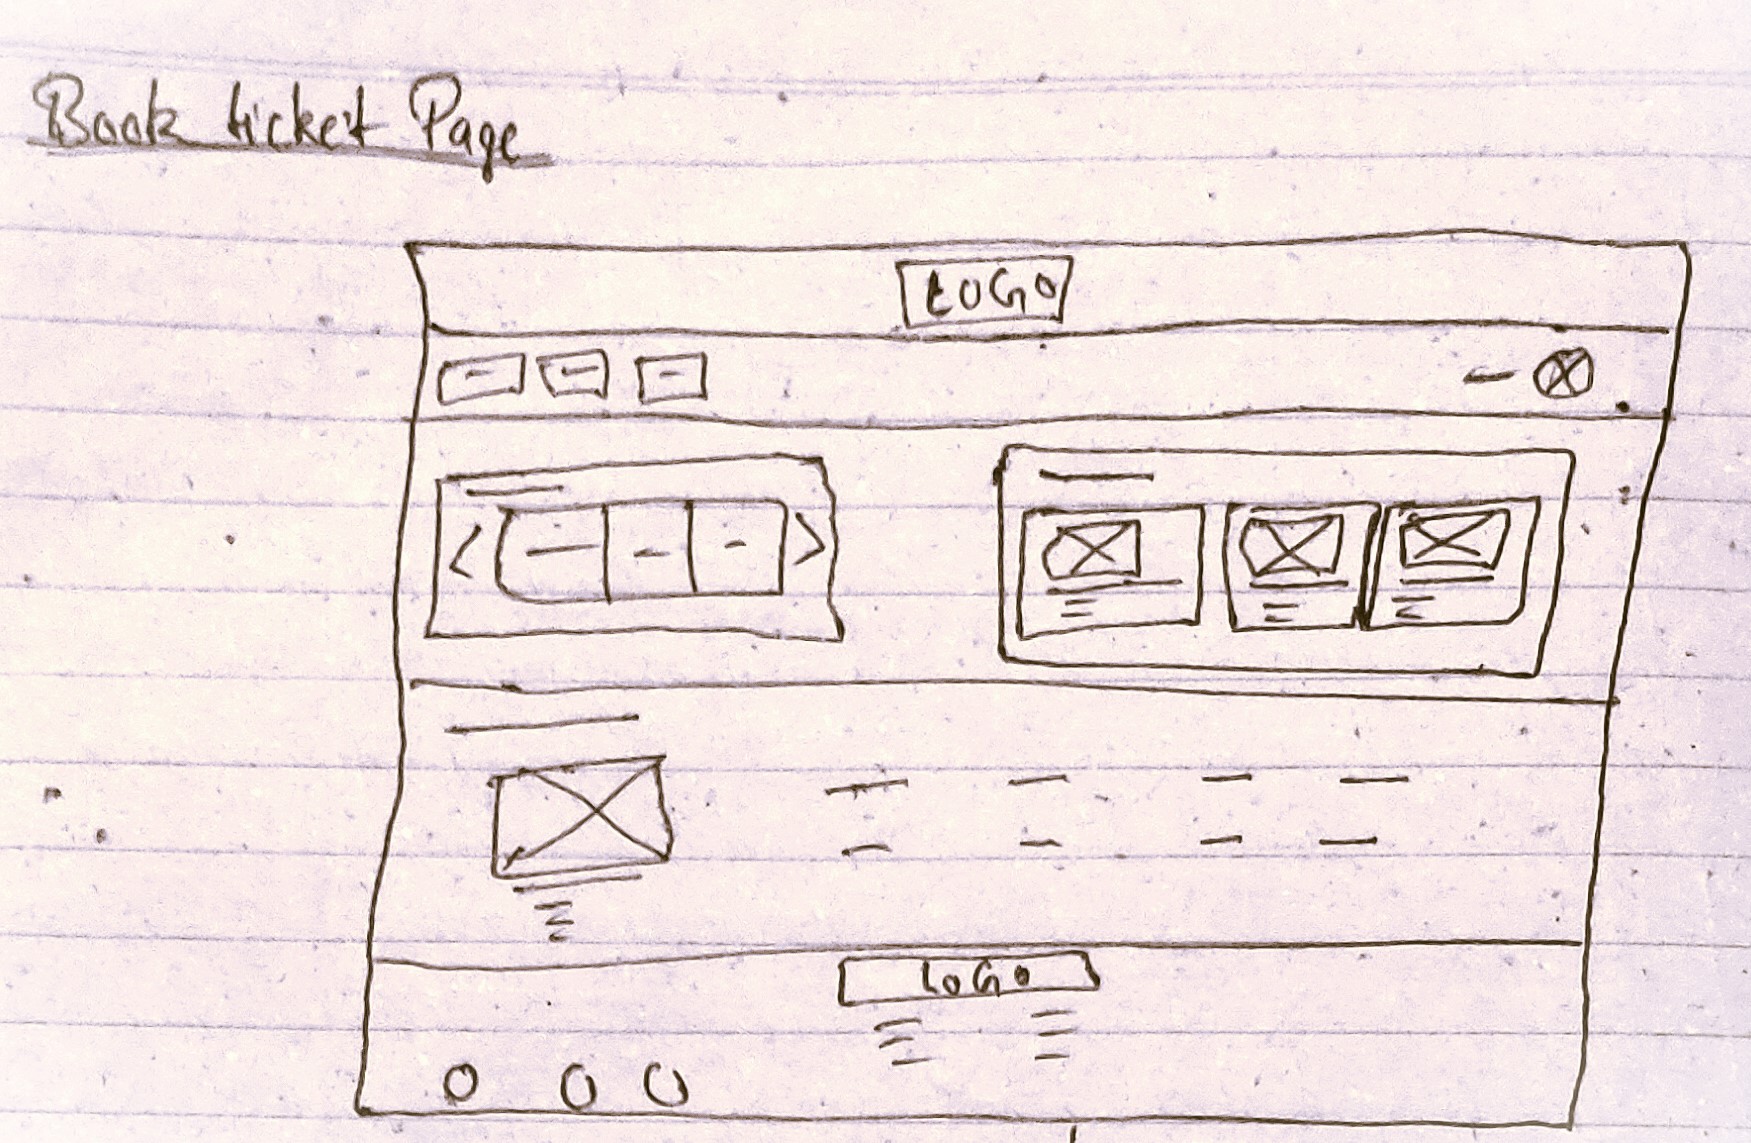 Book ticket Page
LOGO
LOGO